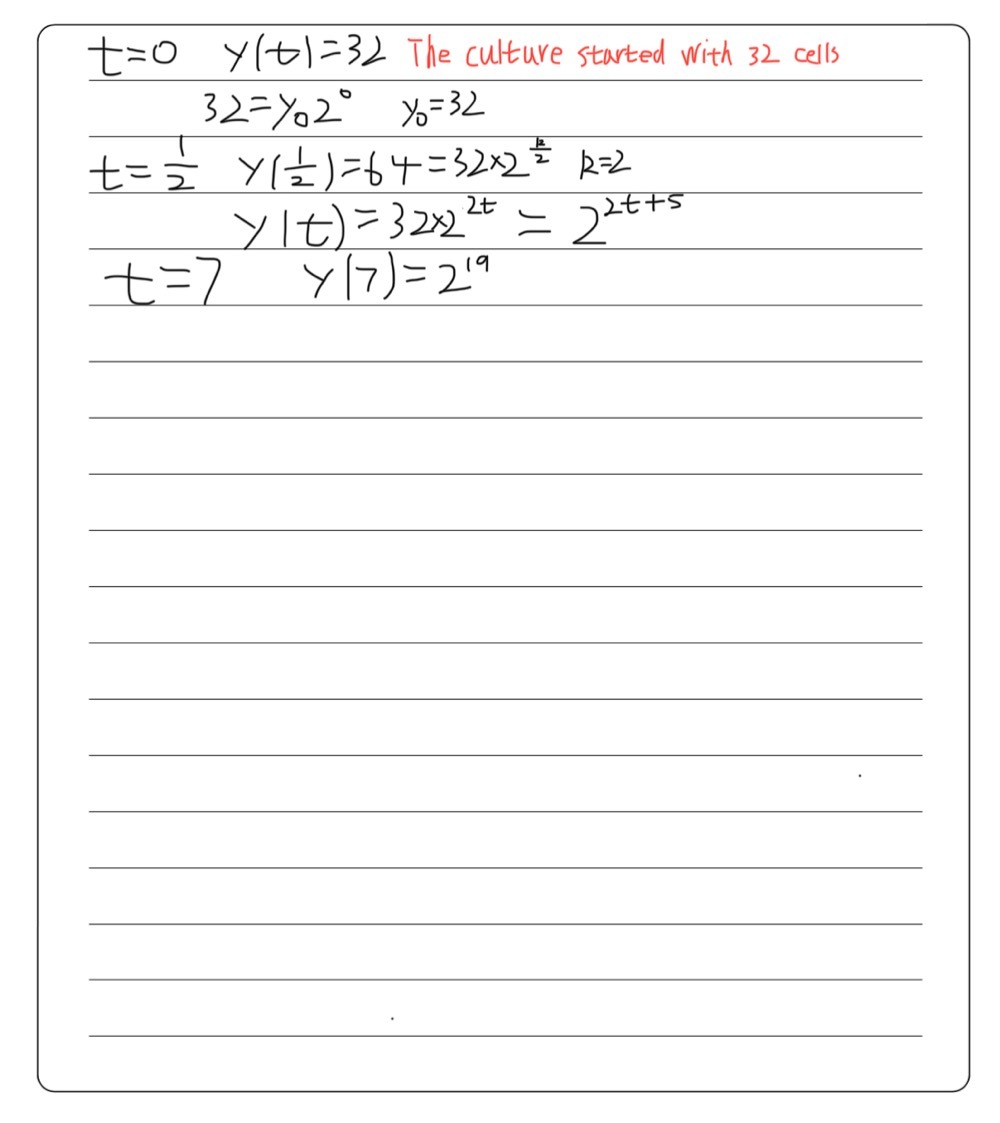 t=0 y(t)=32 The culture started with 32 cells
32=y₀2⁰ y₀=32
t=1/2 y(1/2)=64=32×2^(k/2) k=2
y(t)=32×2^(2t) = 2^(2t+5)
t=7 y(7)=2¹⁹